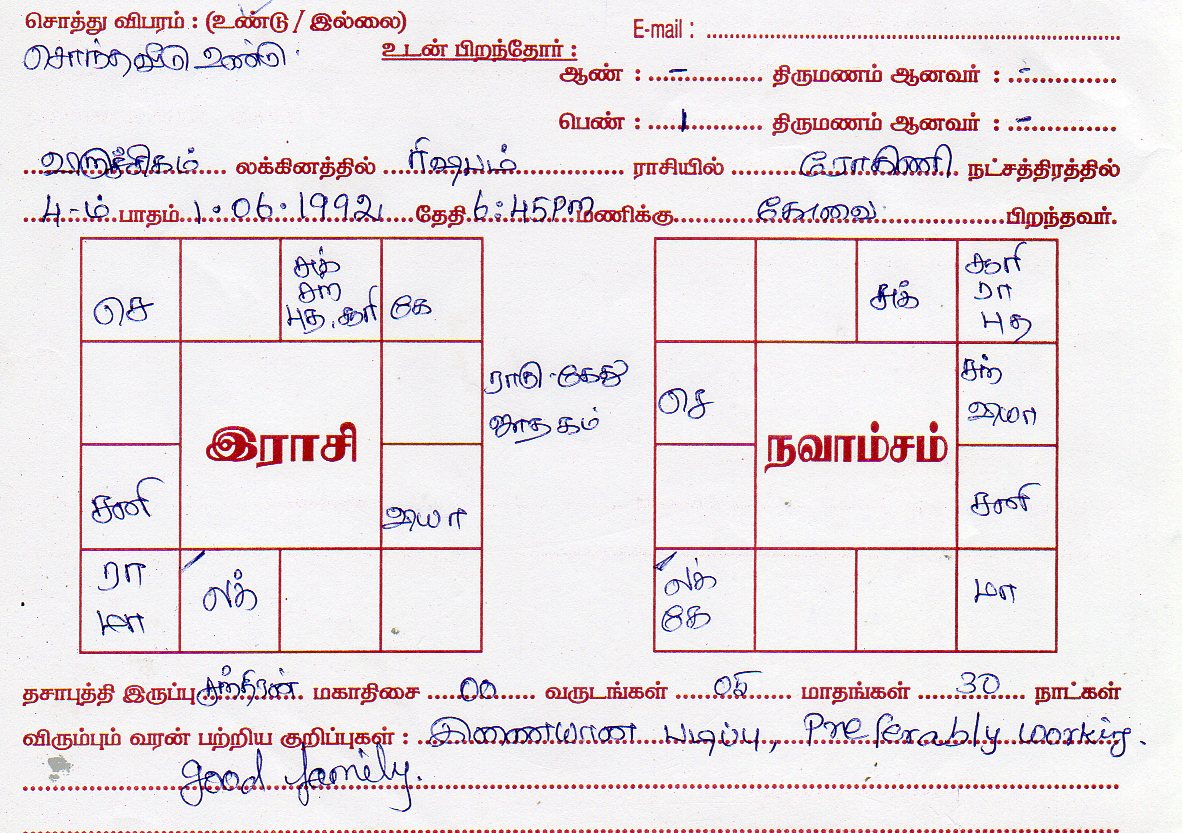 சொத்து விபரம் : (உண்டு / இல்லை)
E-mail : ........................
சொந்தவீடு உண்டு.
உடன் பிறந்தோர் :
ஆண் : ... - ... திருமணம் ஆனவர் : ... - ...
பெண் : ... 1 ... திருமணம் ஆனவர் : ... - ...
விருச்சிகம் லக்கினத்தில் ரிஷபம் ராசியில் ரோகிணி நட்சத்திரத்தில்
4-ம் பாதம் 1.06.1992 தேதி 6:45PM மணிக்கு கோவை பிறந்தவர்.
செ
சுக்
சந்
புத, சூரி
கே
ராகு - கேது
ஜாதகம்
இராசி
சனி
வியா
ரா
மா
லக்
சுக்
சூரி
ரா
புத
செ
சந்
வியா
நவாம்சம்
சனி
லக்
கே
மா
தசாபுத்தி இருப்பு சந்திரன் மகாதிசை 00 வருடங்கள் 05 மாதங்கள் 30 நாட்கள்
விரும்பும் வரன் பற்றிய குறிப்புகள் : இணையான படிப்பு, Preferably working.
good family.